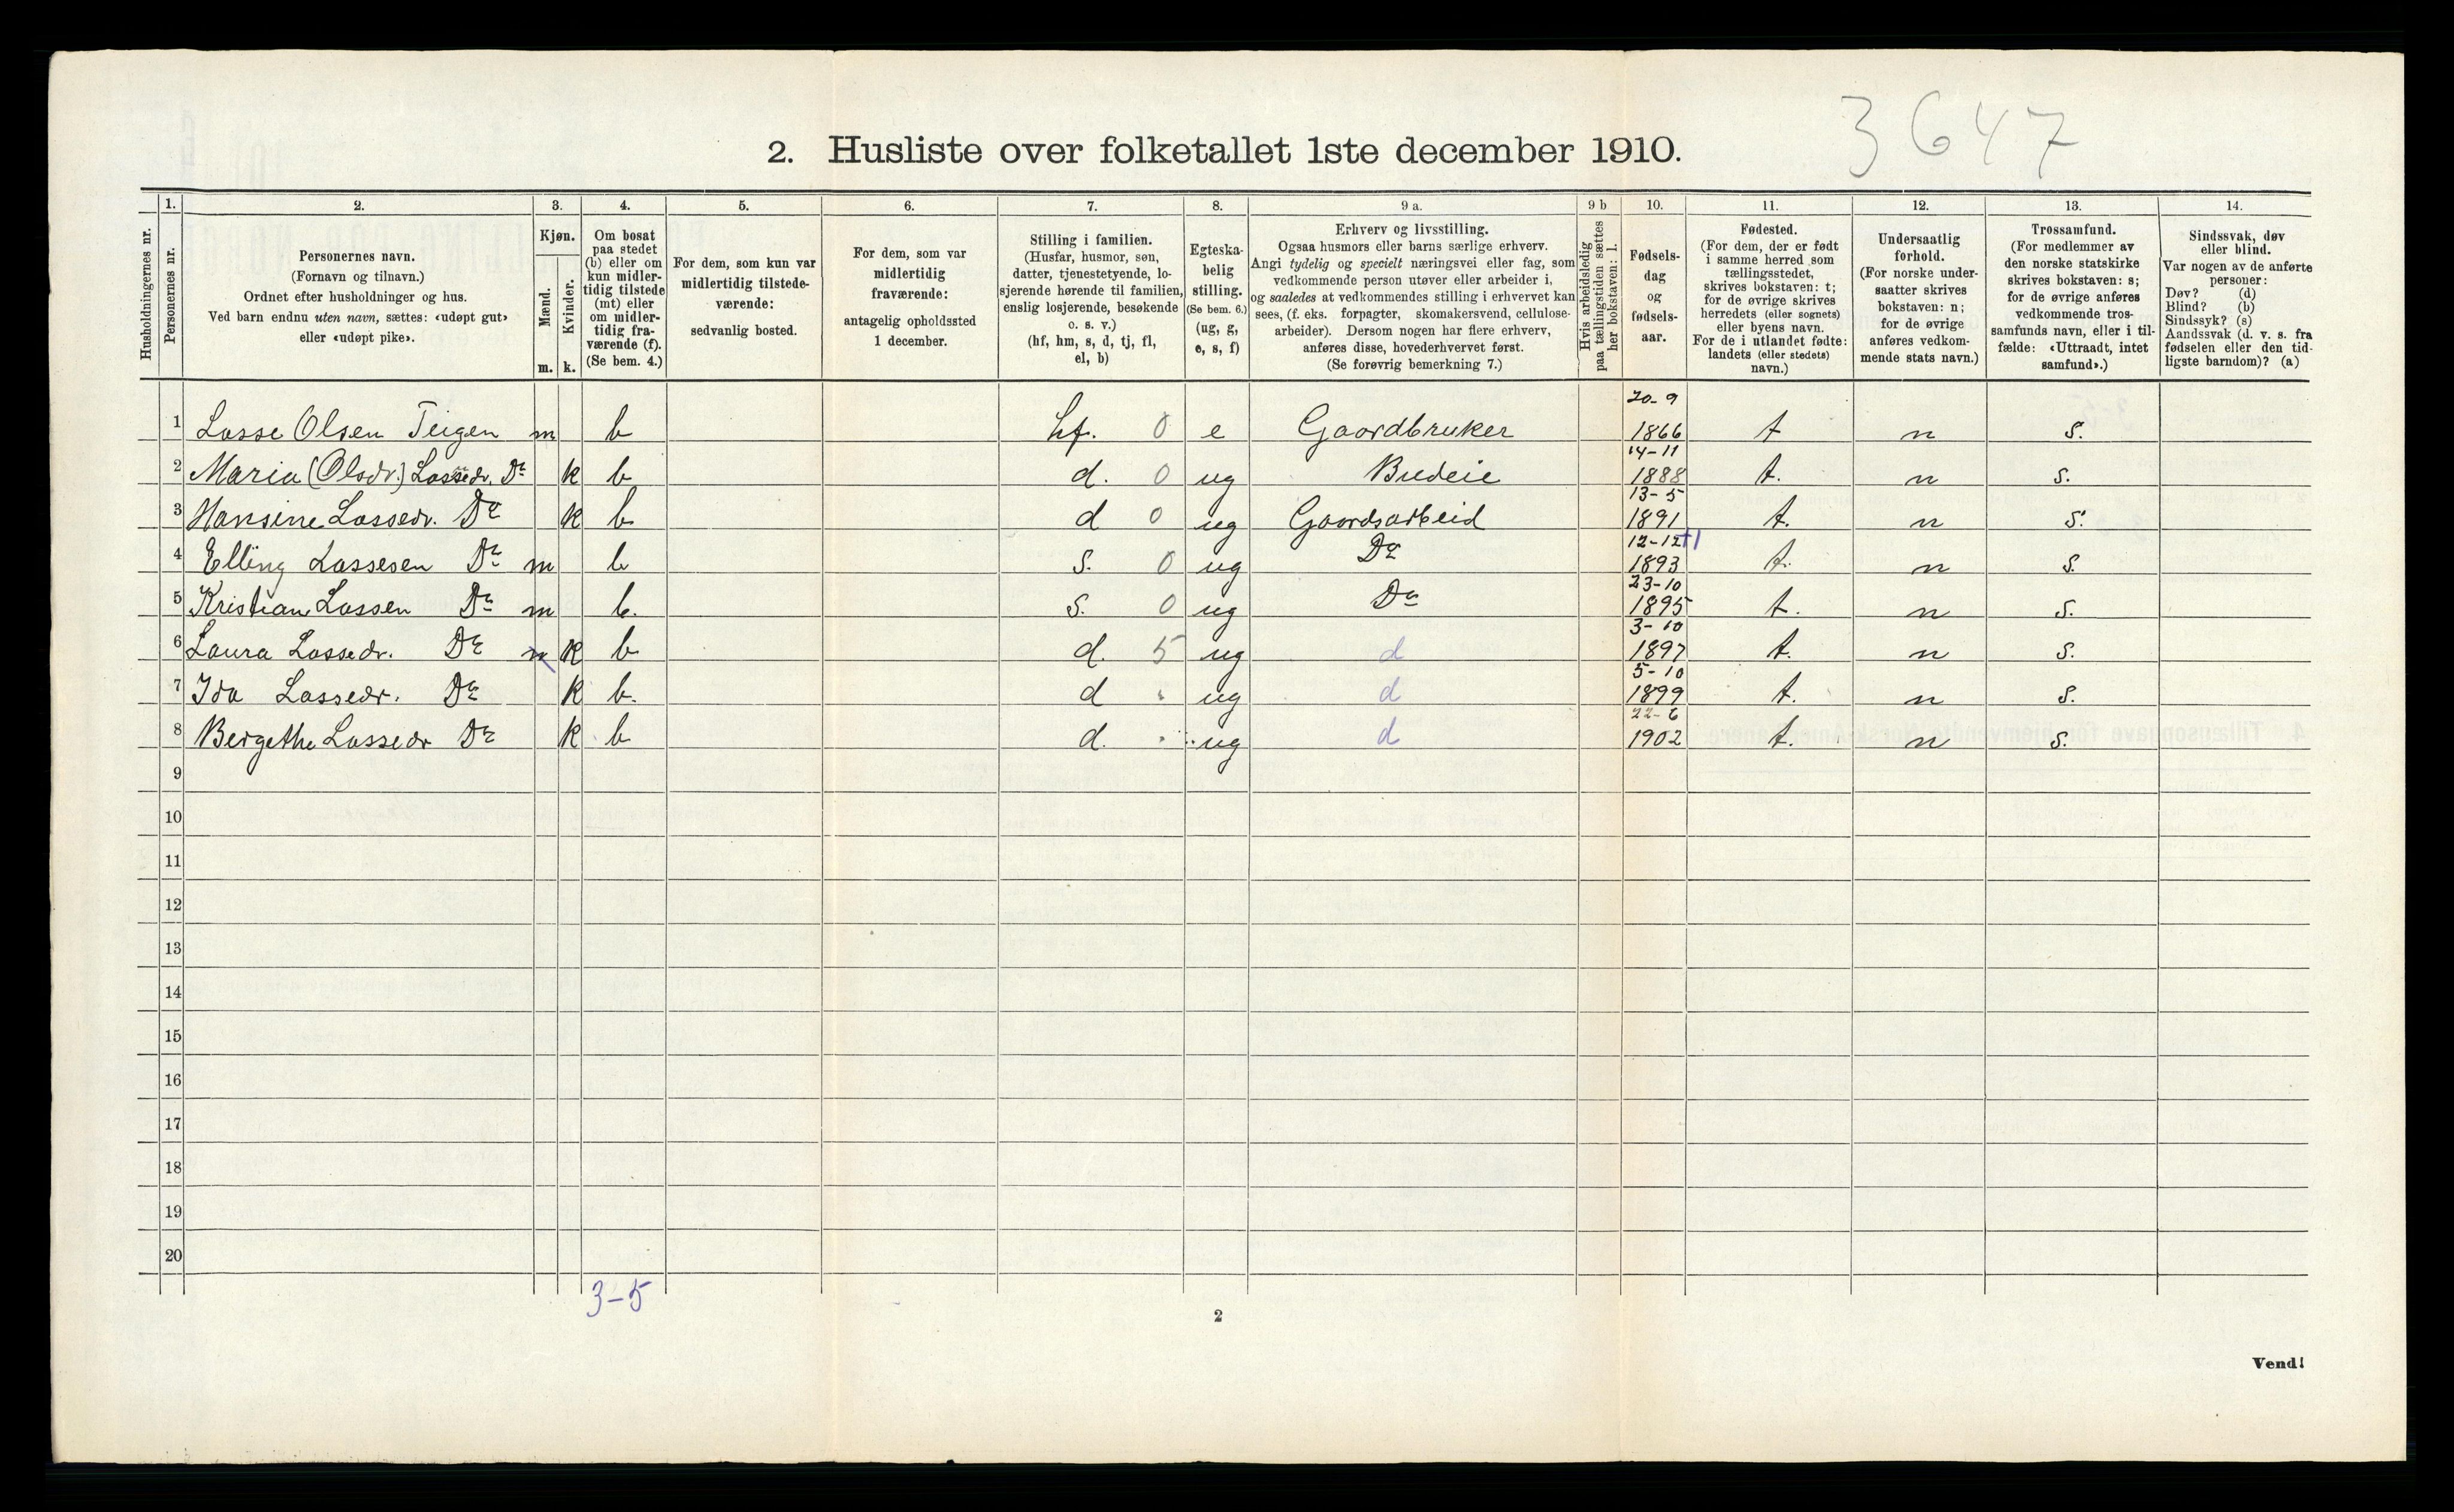 3647
2. Husliste over folketallet 1ste december 1910.
1. 2. 3. 4. 5. 6. 7. 8. 9 a. 9 b 10. 11. 12. 13. 14.
Husholdningernes nr.
Personernes nr.
Personernes navn.
(Fornavn og tilnavn.)
Ordnet efter husholdninger og hus.
Ved barn endnu uten navn, sættes: «udøpt gut»
eller «udøpt pike».
Kjøn.
Mænd.
Kvinder.
m. k.
Om bosat
paa stedet
(b) eller om
kun midler-
tidig tilstede
(mt) eller
om midler-
tidig fra-
værende (f).
(Se bem. 4.)
For dem, som kun var
midlertidig tilstede-
værende:
sedvanlig bosted.
For dem, som var
midlertidig
fraværende:
antagelig opholdssted
1 december.
Stilling i familien.
(Husfar, husmor, søn,
datter, tjenestetyende, lo-
sjerende hørende til familien,
enslig losjerende, besøkende
o. s. v.)
(hf, hm, s, d, tj, fl,
el, b)
Egteska-
belig
stilling.
(Se bem. 6.)
(ug, g,
e, s, f)
Erhverv og livsstilling.
Ogsaa husmors eller barns særlige erhverv.
Angi tydelig og specielt næringsvei eller fag, som
vedkommende person utøver eller arbeider i,
og saaledes at vedkommendes stilling i erhvervet kan
sees, (f. eks. forpagter, skomakersvend, cellulose-
arbeider). Dersom nogen har flere erhverv,
anføres disse, hovederhvervet først.
(Se forøvrig bemerkning 7.)
Hvis arbeidsledig
paa tællingstiden sættes
her bokstaven: l.
Fødsels-
dag
og
fødsels-
aar.
Fødested.
(For dem, der er født
i samme herred som
tællingsstedet,
skrives bokstaven: t;
for de øvrige skrives
herredets (eller sognets)
eller byens navn.
For de i utlandet fødte:
landets (eller stedets)
navn.)
Undersaatlig
forhold.
(For norske under-
saatter skrives
bokstaven: n;
for de øvrige
anføres vedkom-
mende stats navn.)
Trossamfund.
(For medlemmer av
den norske statskirke
skrives bokstaven: s;
for de øvrige anføres
vedkommende tros-
samfunds navn, eller i til-
fælde: «Uttraadt, intet
samfund».)
Sindssvak, døv
eller blind.
Var nogen av de anførte
personer:
Døv? (d)
Blind? (b)
Sindssyk? (s)
Aandssvak (d. v. s. fra
fødselen eller den tid-
ligste barndom)? (a)
20-9
1 Lasse Olsen Teigen m b hf. 0 e Gaardbruker 1866 t n s.
14-11
2 Maria (Olsdr.) Lassedr. Do k b d. 0 ug Budeie 1888 t. n s.
13-5
3 Hansine Lassedr. Do k b d 0 ug Gaardsarbeid 1891 t. n s.
12-12
4 Elling Lassesen Do m b s. 0 ug Do 1893 t. n s.
23-10
5 Kristian Lassen Do m b. s. 0 ug Do 1895 t. n s.
3-10
6 Laura Lassedr. Do m k b d. 5 ug d 1897 t. n s.
5-10
7 Ida Lassedr. Do k b. d ug d 1899 t. n s.
22-6
8 Bergethe Lassedr Do k b d. ug d 1902 t. n s.
9
10
11
12
13
14
15
16
17
18
19
20
3-5
2
Vend!